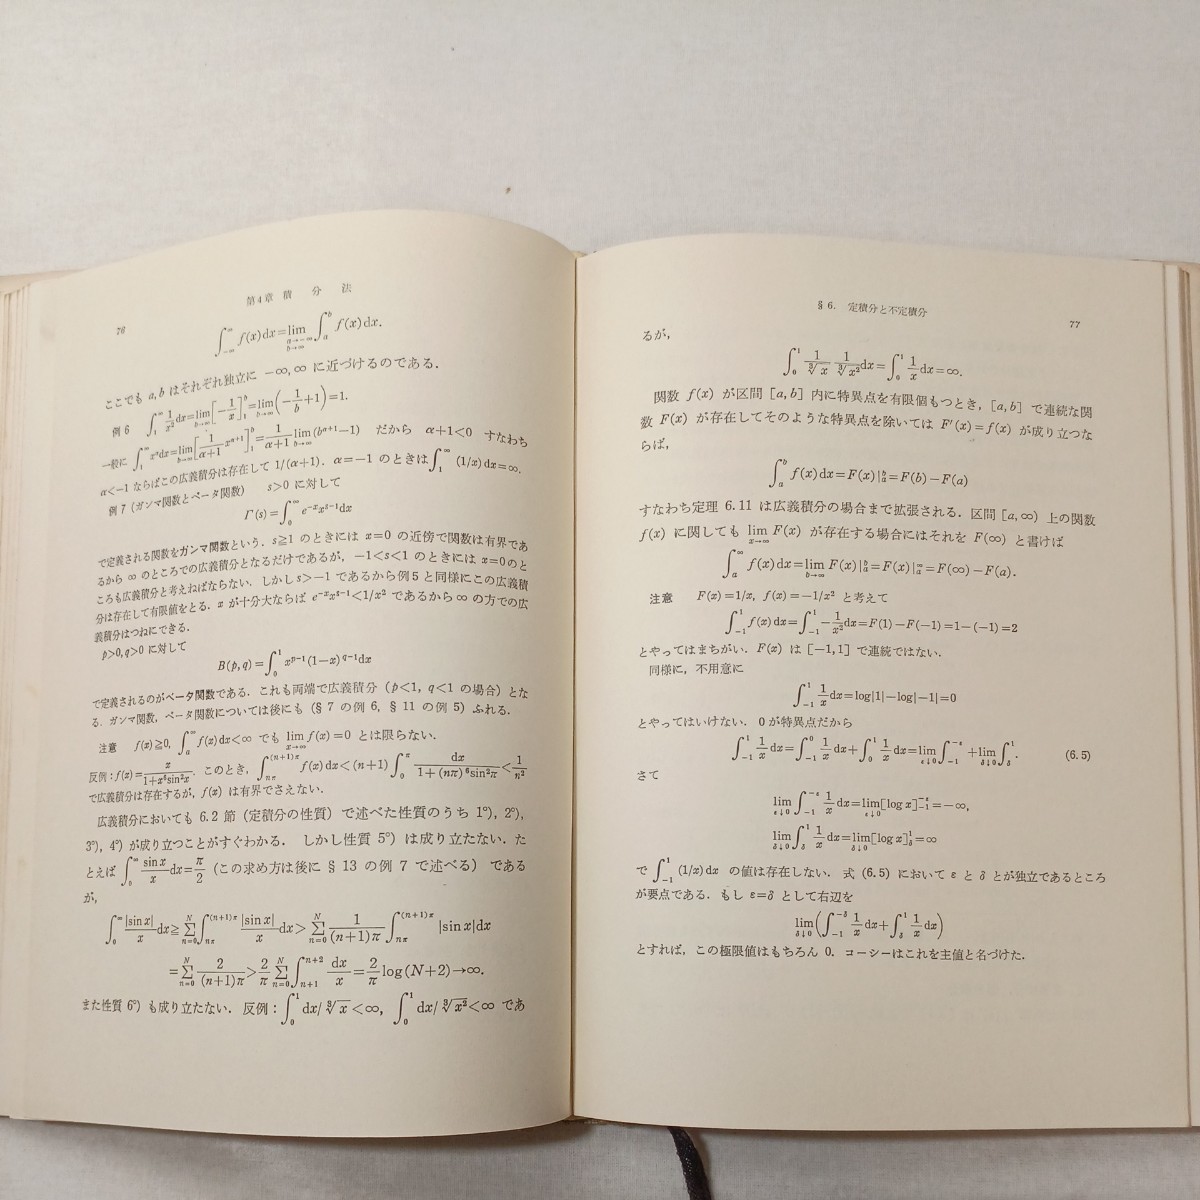 76
第4章 積 分 法
∫_{-∞}^{∞} f(x)dx=lim_{a→-∞ b→∞} ∫_a^b f(x)dx.
ここでも a, b はそれぞれ独立に −∞, ∞ に近づけるのである.
例 6 ∫_1^∞ 1/x² dx=lim_{b→∞}[−1/x]_1^b=lim_{b→∞}(−1/b+1)=1.
一般に ∫_1^∞ x^α dx=lim_{b→∞}[1/(α+1) x^{α+1}]_1^b=1/(α+1) lim_{b→∞}(b^{α+1}−1) だから α+1<0 すなわち
α<−1 ならばこの広義積分は存在して 1/(α+1). α=−1 のときは ∫_1^∞ (1/x)dx=∞.
例 7 (ガンマ関数とベータ関数) s>0 に対して
Γ(s)=∫_0^∞ e^{-x}x^{s-1}dx
で定義される関数をガンマ関数という. s≧1 のときには x=0 の近傍で関数は有界であ
るから ∞ のところでの広義積分となるだけであるが, −1<s<1 のときには x=0 のと
ころも広義積分と考えねばならない. しかし s>−1 であるから例5と同様にこの広義積
分は存在して有限値をとる. x が十分大ならば e^{-x}x^{s-1}<1/x² であるから ∞ の方での広
義積分はつねにできる.
p>0, q>0 に対して
B(p, q)=∫_0^1 x^{p-1}(1−x)^{q-1}dx
で定義されるのがベータ関数である. これも両端で広義積分 (p<1, q<1 の場合) とな
る. ガンマ関数, ベータ関数については後にも (§7 の例 6, §11 の例 5) ふれる.
注意 f(x)≧0, ∫_a^∞ f(x)dx<∞ でも lim_{x→∞} f(x)=0 とは限らない.
反例: f(x)=x/(1+x⁶sin²x). このとき, ∫_{nπ}^{(n+1)π} f(x)dx<(n+1)∫_0^π dx/(1+(nπ)⁶sin²π)<1/n²
で広義積分は存在するが, f(x) は有界でさえない.
広義積分においても 6.2 節 (定積分の性質) で述べた性質のうち 1°), 2°),
3°), 4°) が成り立つことがすぐわかる. しかし性質 5°) は成り立たない. た
とえば ∫_0^∞ sin x/x dx=π/2 (この求め方は後に §13 の例 7 で述べる) である
が,
∫_0^∞ |sin x|/x dx≧Σ_{n=0}^N ∫_{nπ}^{(n+1)π} |sin x|/x dx>Σ_{n=0}^N 1/((n+1)π) ∫_{nπ}^{(n+1)π} |sin x|dx
=Σ_{n=0}^N 2/((n+1)π)>2/π Σ_{n=0}^N ∫_{n+1}^{n+2} dx/x=2/π log(N+2)→∞.
また性質 6°) も成り立たない. 反例: ∫_0^1 dx/∛x<∞, ∫_0^1 dx/∛x²<∞ であ
§6. 定積分と不定積分
77
るが,
∫_0^1 1/∛x 1/∛x² dx=∫_0^1 1/x dx=∞.
関数 f(x) が区間 [a, b] 内に特異点を有限個もつとき, [a, b] で連続な関
数 F(x) が存在してそのような特異点を除いては F′(x)=f(x) が成り立つな
らば,
∫_a^b f(x)dx=F(x)|_a^b=F(b)−F(a)
すなわち定理 6.11 は広義積分の場合まで拡張される. 区間 [a, ∞) 上の関数
f(x) に関しても lim_{x→∞} F(x) が存在する場合にはそれを F(∞) と書けば
∫_a^∞ f(x)dx=lim_{b→∞} F(x)|_a^b=F(x)|_a^∞=F(∞)−F(a).
注意 F(x)=1/x, f(x)=−1/x² と考えて
∫_{-1}^1 f(x)dx=∫_{-1}^1 −1/x² dx=F(1)−F(−1)=1−(−1)=2
とやってはまちがい. F(x) は [−1, 1] で連続ではない.
同様に, 不用意に
∫_{-1}^1 1/x dx=log|1|−log|−1|=0
とやってはいけない. 0 が特異点だから
∫_{-1}^1 1/x dx=∫_{-1}^0 1/x dx+∫_0^1 1/x dx=lim_{ε↓0}∫_{-1}^{-ε}+lim_{δ↓0}∫_δ^1. (6.5)
さて
lim_{ε↓0}∫_{-1}^{-ε} 1/x dx=lim_{ε↓0}[log x]_{-1}^{-ε}=−∞,
lim_{δ↓0}∫_δ^1 1/x dx=lim_{δ↓0}[log x]_δ^1=∞
で ∫_{-1}^1 (1/x)dx の値は存在しない. 式 (6.5) において ε と δ とが独立であるところ
が要点である. もし ε=δ として右辺を
lim_{δ↓0}(∫_{-1}^{-δ} 1/x dx+∫_δ^1 1/x dx)
とすれば, この極限値はもちろん 0. コーシーはこれを主値と名づけた.